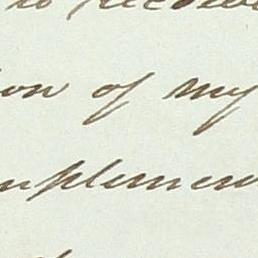 to receive
ion of my
mplemen